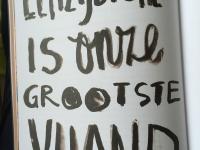 IS onze
GROOTSTE
VIJAND